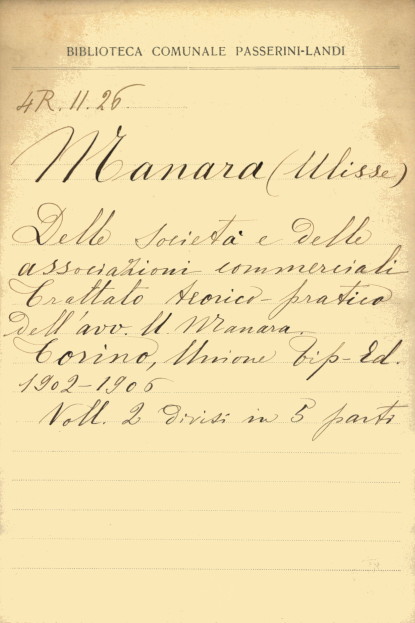 BIBLIOTECA COMUNALE PASSERINI-LANDI
4R.11.26.
Manara (Ulisse)
Delle società e delle
associazioni commerciali
Trattato teorico-pratico
dell'avv. U. Manara.
Torino, Unione Tip-Ed.
1902-1906
Voll. 2 divisi in 5 parti